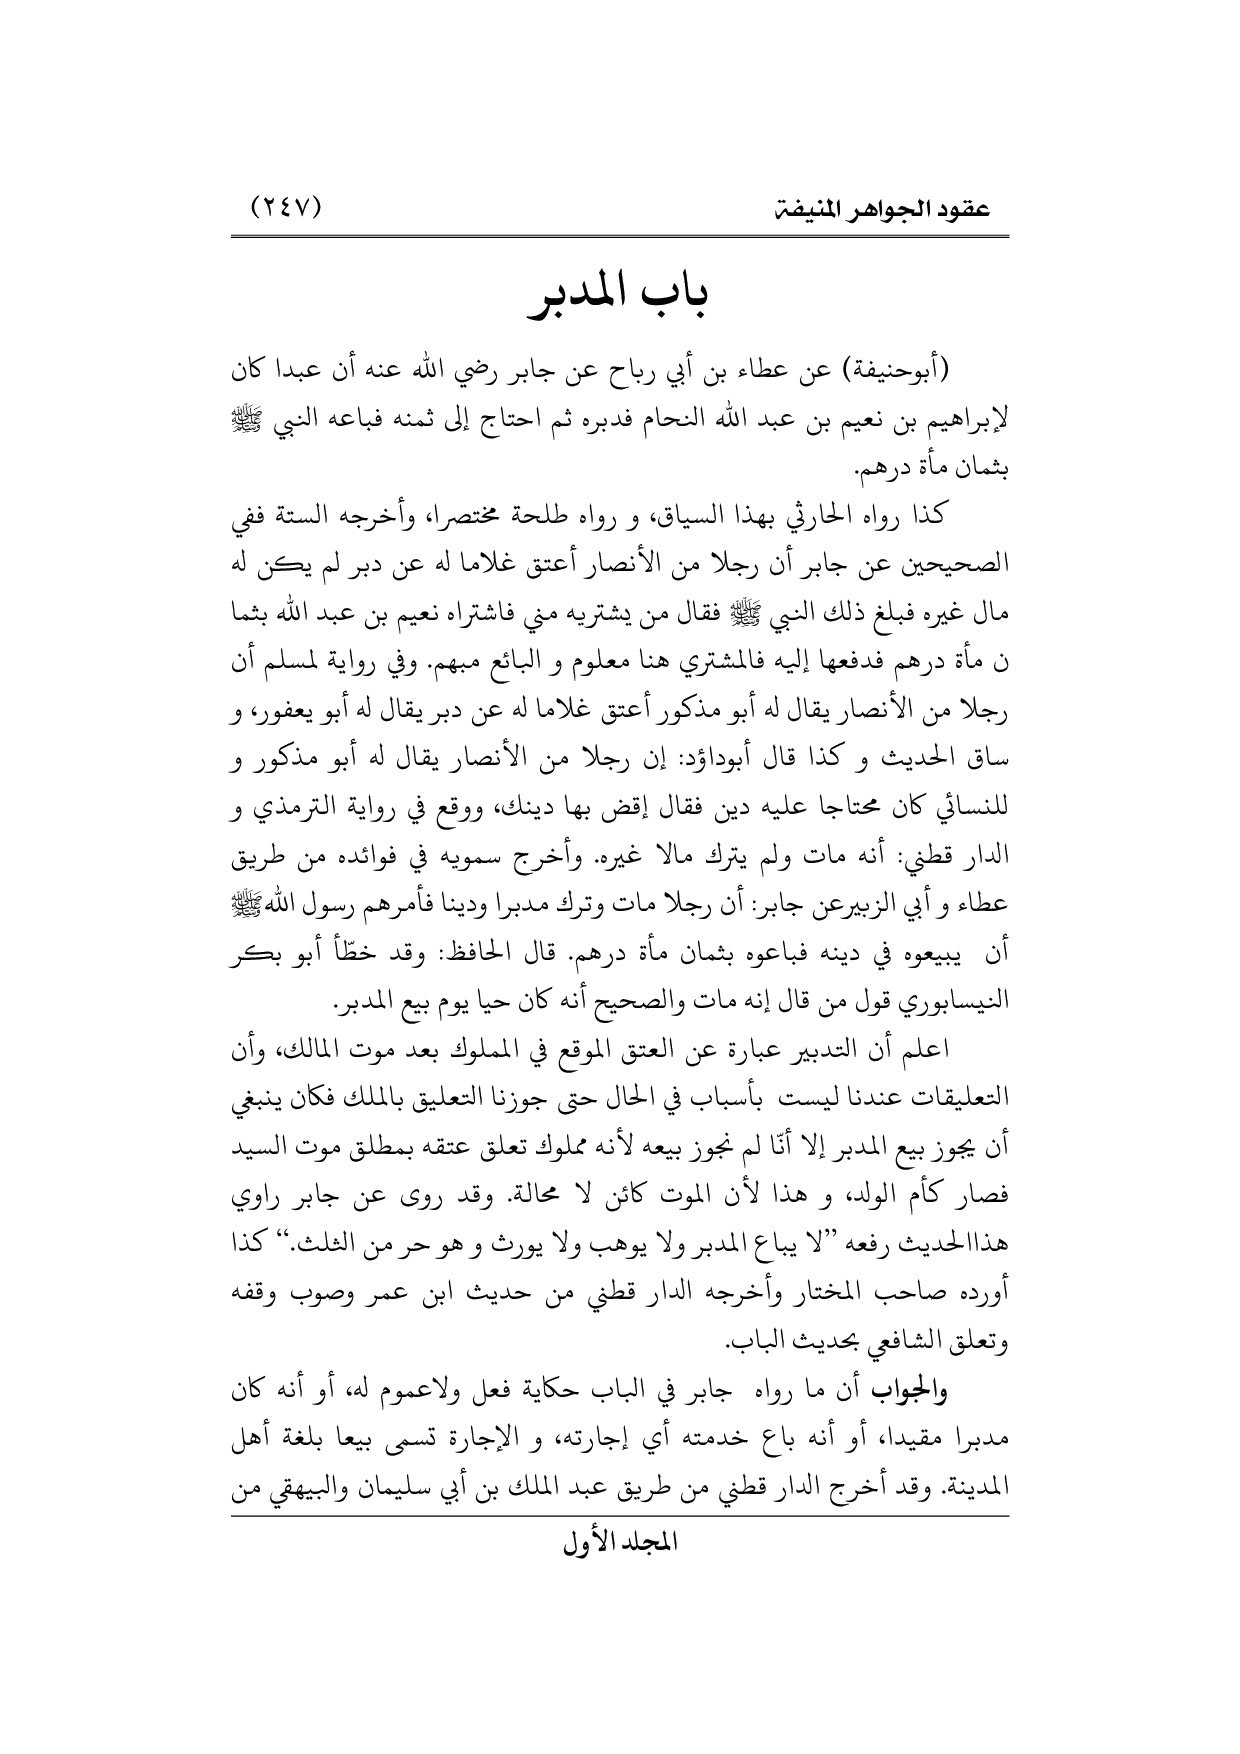 عقود الجواهر المنيفة (٢٤٧)
باب المدبر
(أبوحنيفة) عن عطاء بن أبي رباح عن جابر رضي الله عنه أن عبدا كان
لإبراهيم بن نعيم بن عبد الله النحام فدبره ثم احتاج إلى ثمنه فباعه النبي ﷺ
بثمان مأة درهم.
كذا رواه الحارثي بهذا السياق، و رواه طلحة مختصرا، وأخرجه الستة ففي
الصحيحين عن جابر أن رجلا من الأنصار أعتق غلاما له عن دبر لم يكن له
مال غيره فبلغ ذلك النبي ﷺ فقال من يشتريه مني فاشتراه نعيم بن عبد الله بثما
ن مأة درهم فدفعها إليه فالمشتري هنا معلوم و البائع مبهم. وفي رواية لمسلم أن
رجلا من الأنصار يقال له أبو مذكور أعتق غلاما له عن دبر يقال له أبو يعفور، و
ساق الحديث و كذا قال أبوداؤد: إن رجلا من الأنصار يقال له أبو مذكور و
للنسائي كان محتاجا عليه دين فقال إقض بها دينك، ووقع في رواية الترمذي و
الدار قطني: أنه مات ولم يترك مالا غيره. وأخرج سمويه في فوائده من طريق
عطاء و أبي الزبيرعن جابر: أن رجلا مات وترك مدبرا ودينا فأمرهم رسول الله ﷺ
أن يبيعوه في دينه فباعوه بثمان مأة درهم. قال الحافظ: وقد خطّأ أبو بكر
النيسابوري قول من قال إنه مات والصحيح أنه كان حيا يوم بيع المدبر.
اعلم أن التدبير عبارة عن العتق الموقع في المملوك بعد موت المالك، وأن
التعليقات عندنا ليست بأسباب في الحال حتى جوزنا التعليق بالملك فكان ينبغي
أن يجوز بيع المدبر إلا أنّا لم نجوز بيعه لأنه مملوك تعلق عتقه بمطلق موت السيد
فصار كأم الولد، و هذا لأن الموت كائن لا محالة. وقد روى عن جابر راوي
هذاالحديث رفعه ”لا يباع المدبر ولا يوهب ولا يورث و هو حر من الثلث.“ كذا
أورده صاحب المختار وأخرجه الدار قطني من حديث ابن عمر وصوب وقفه
وتعلق الشافعي بحديث الباب.
والجواب أن ما رواه جابر في الباب حكاية فعل ولاعموم له، أو أنه كان
مدبرا مقيدا، أو أنه باع خدمته أي إجارته، و الإجارة تسمى بيعا بلغة أهل
المدينة. وقد أخرج الدار قطني من طريق عبد الملك بن أبي سليمان والبيهقي من
المجلد الأول